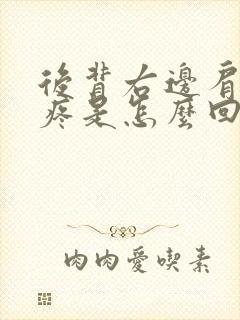 後背右邊肩
疼是怎麼回
肉肉愛喫素